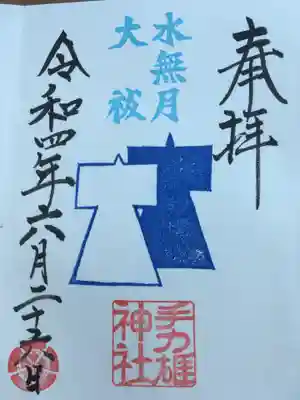 奉拝
水無月
大祓
手力雄
神社
令和四年六月二十六日